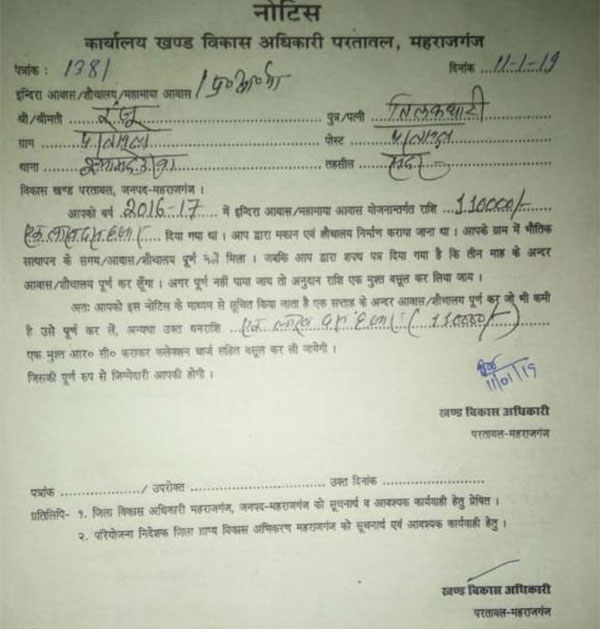 नोटिस
कार्यालय खण्ड विकास अधिकारी परतावल, महराजगंज
पत्रांक : 1381 दिनांक 11-1-19
इन्दिरा आवास/शौचालय/महामाया आवास/
श्री/श्रीमती पुत्र/पत्नी तिलकधारी
ग्राम पोस्ट
थाना तहसील सदर
विकास खण्ड परतावल, जनपद-महराजगंज ।
आपको वर्ष 2016-17 में इन्दिरा आवास/महामाया आवास योजनान्तर्गत राशि 110000/-
एक लाख दस हजार दिया गया था । आप द्वारा मकान एवं शौचालय निर्माण कराया जाना था । आपके ग्राम में भौतिक
सत्यापन के समय/आवास/शौचालय पूर्ण नहीं मिला । जबकि आप द्वारा शपथ पत्र दिया गया है कि तीन माह के अन्दर
आवास/शौचालय पूर्ण कर लूँगा । अगर पूर्ण नहीं पाया जाय तो अनुदान राशि एक मुश्त वसूल कर लिया जाय ।
अतः आपको इस नोटिस के माध्यम से सूचित किया जाता है एक सप्ताह के अन्दर आवास/शौचालय पूर्ण कर जो भी कमी
है उसे पूर्ण कर लें, अन्यथा उक्त धनराशि एक लाख दस हजार (110000/-)
एक मुश्त आर० सी० कराकर कलेक्शन चार्ज सहित वसूल कर ली जायेगी ।
जिसकी पूर्ण रुप से जिम्मेदारी आपकी होगी ।
11/01/19
खण्ड विकास अधिकारी
परतावल-महराजगंज
पत्रांक ............../ उपरोक्त उक्त दिनांक ..............
प्रतिलिपि- १. जिला विकास अधिकारी महराजगंज, जनपद-महराजगंज को सूचनार्थ व आवश्यक कार्यवाही हेतु प्रेषित ।
२. परियोजना निदेशक जिला ग्राम्य विकास अभिकरण महराजगंज को सूचनार्थ एवं आवश्यक कार्यवाही हेतु ।
खण्ड विकास अधिकारी
परतावल-महराजगंज